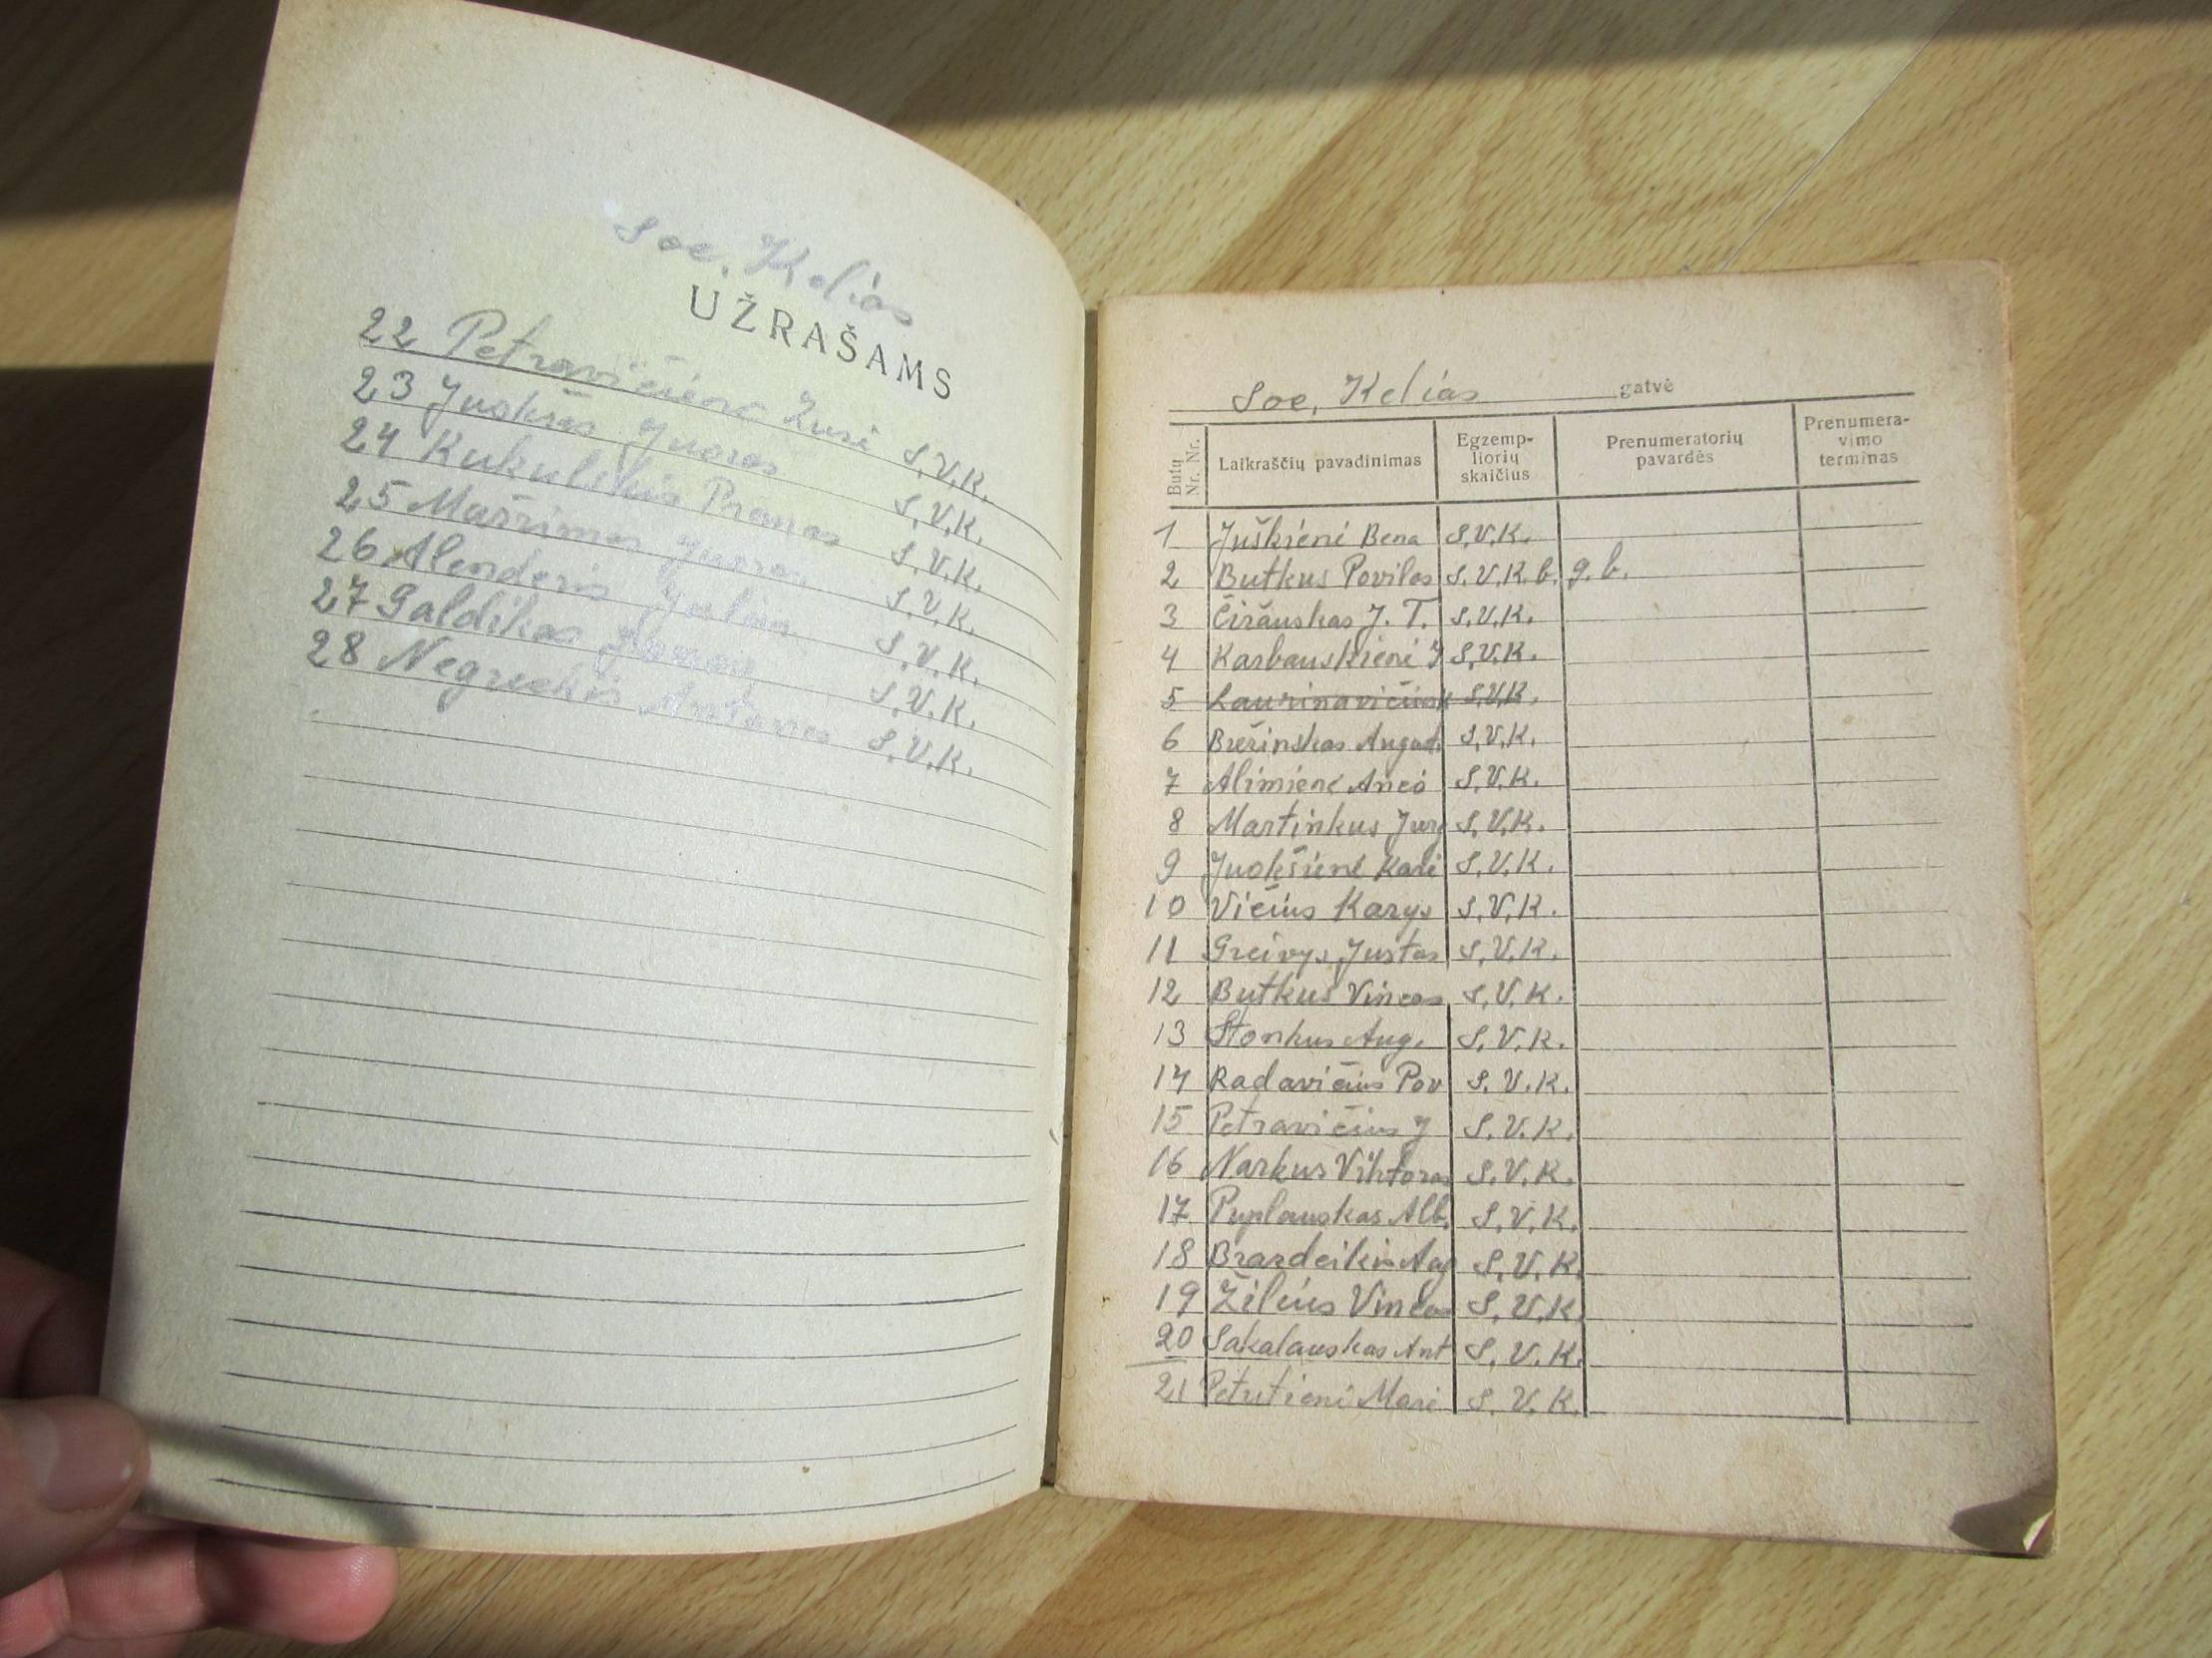 Soc. Kelias
UŽRAŠAMS
22 Petravičienė Zusi S.V.K.
23 Juokšas Juozas S.V.K.
24 Kukulskis Pranas S.V.K.
25 Mažrimas Juozas S.V.K.
26 Alenderis Julius S.V.K.
27 Galdikas S.V.K.
28 Negruckis Antanas S.V.K.
Soc. Kelias gatvė
Butų Nr. Nr.
Laikraščių pavadinimas
Egzemp-
liorių
skaičius
Prenumeratorių
pavardės
Prenumera-
vimo
terminas
1 Juškienė Bena S.V.K.
2 Butkus Povilas S.V.K.b. g.b.
3 Čižauskas J. T. S.V.K.
4 Karbauskienė J S.V.K.
5 Laurinavičius S.V.K.
6 Brežinskas August. S.V.K.
7 Alimienė Anei S.V.K.
8 Martinkus Jurg S.V.K.
9 Juokšienė Kazi S.V.K.
10 Vičius Kazys S.V.K.
11 Greivys Justas S.V.K.
12 Butkus Vincas S.V.K.
13 Stonkus Aug. S.V.K.
14 Radavičius Pov S.V.K.
15 Petravičius J S.V.K.
16 Narkus Viktoras S.V.K.
17 Puplauskas Alb. S.V.K.
18 Brazdeikis Aug S.V.K.
19 Žilius Vincas S.V.K.
20 Sakalauskas Ant S.V.K.
21 Petutienė Mari S.V.K.